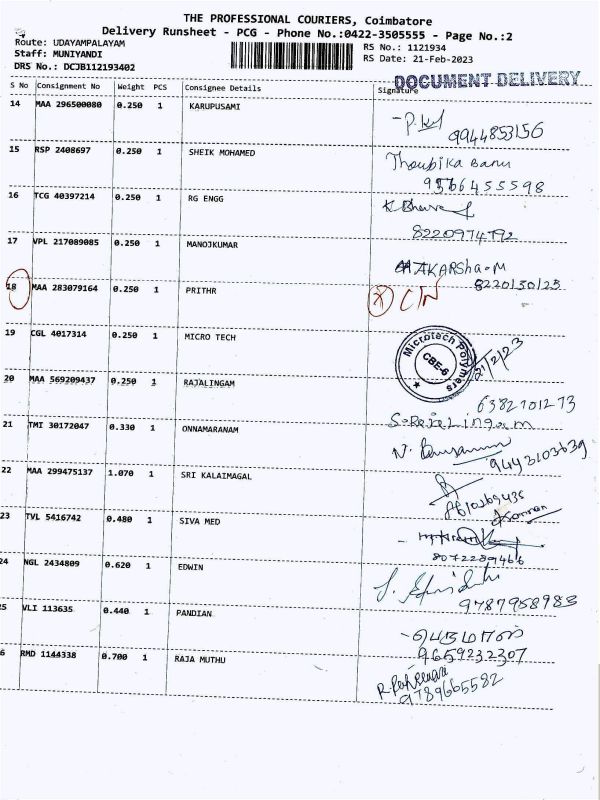 THE PROFESSIONAL COURIERS, Coimbatore
Delivery Runsheet - PCG - Phone No.:0422-3505555 - Page No.:2
Route: UDAYAMPALAYAM
Staff: MUNIYANDI
DRS No.: DCJB112193402
RS No.: 1121934
RS Date: 21-Feb-2023
DOCUMENT DELIVERY
S No Consignment No Weight PCS Consignee Details Signature
14 MAA 296500080 0.250 1 KARUPUSAMI
9944853156
15 RSP 2408697 0.250 1 SHEIK MOHAMED Thoubika Banu
9566455598
16 TCG 40397214 0.250 1 RG ENGG
8220974792
17 VPL 217089085 0.250 1 MANOJKUMAR AKARSHA.M
8220130123
18 MAA 283079164 0.250 1 PRITHR X C/N
19 CGL 4017314 0.250 1 MICRO TECH Microtech Polymers CBE-6
20 MAA 569209437 0.250 1 RAJALINGAM 6382701273
S.RajaLingam
21 TMI 30172047 0.330 1 ONNAMARANAM
9443103639
22 MAA 299475137 1.070 1 SRI KALAIMAGAL
23 TVL 5416742 0.480 1 SIVA MED
8072289466
24 NGL 2434809 0.620 1 EDWIN
9787958983
25 VLI 113635 0.440 1 PANDIAN
9659232307
6 RMD 1144338 0.700 1 RAJA MUTHU
9789665582